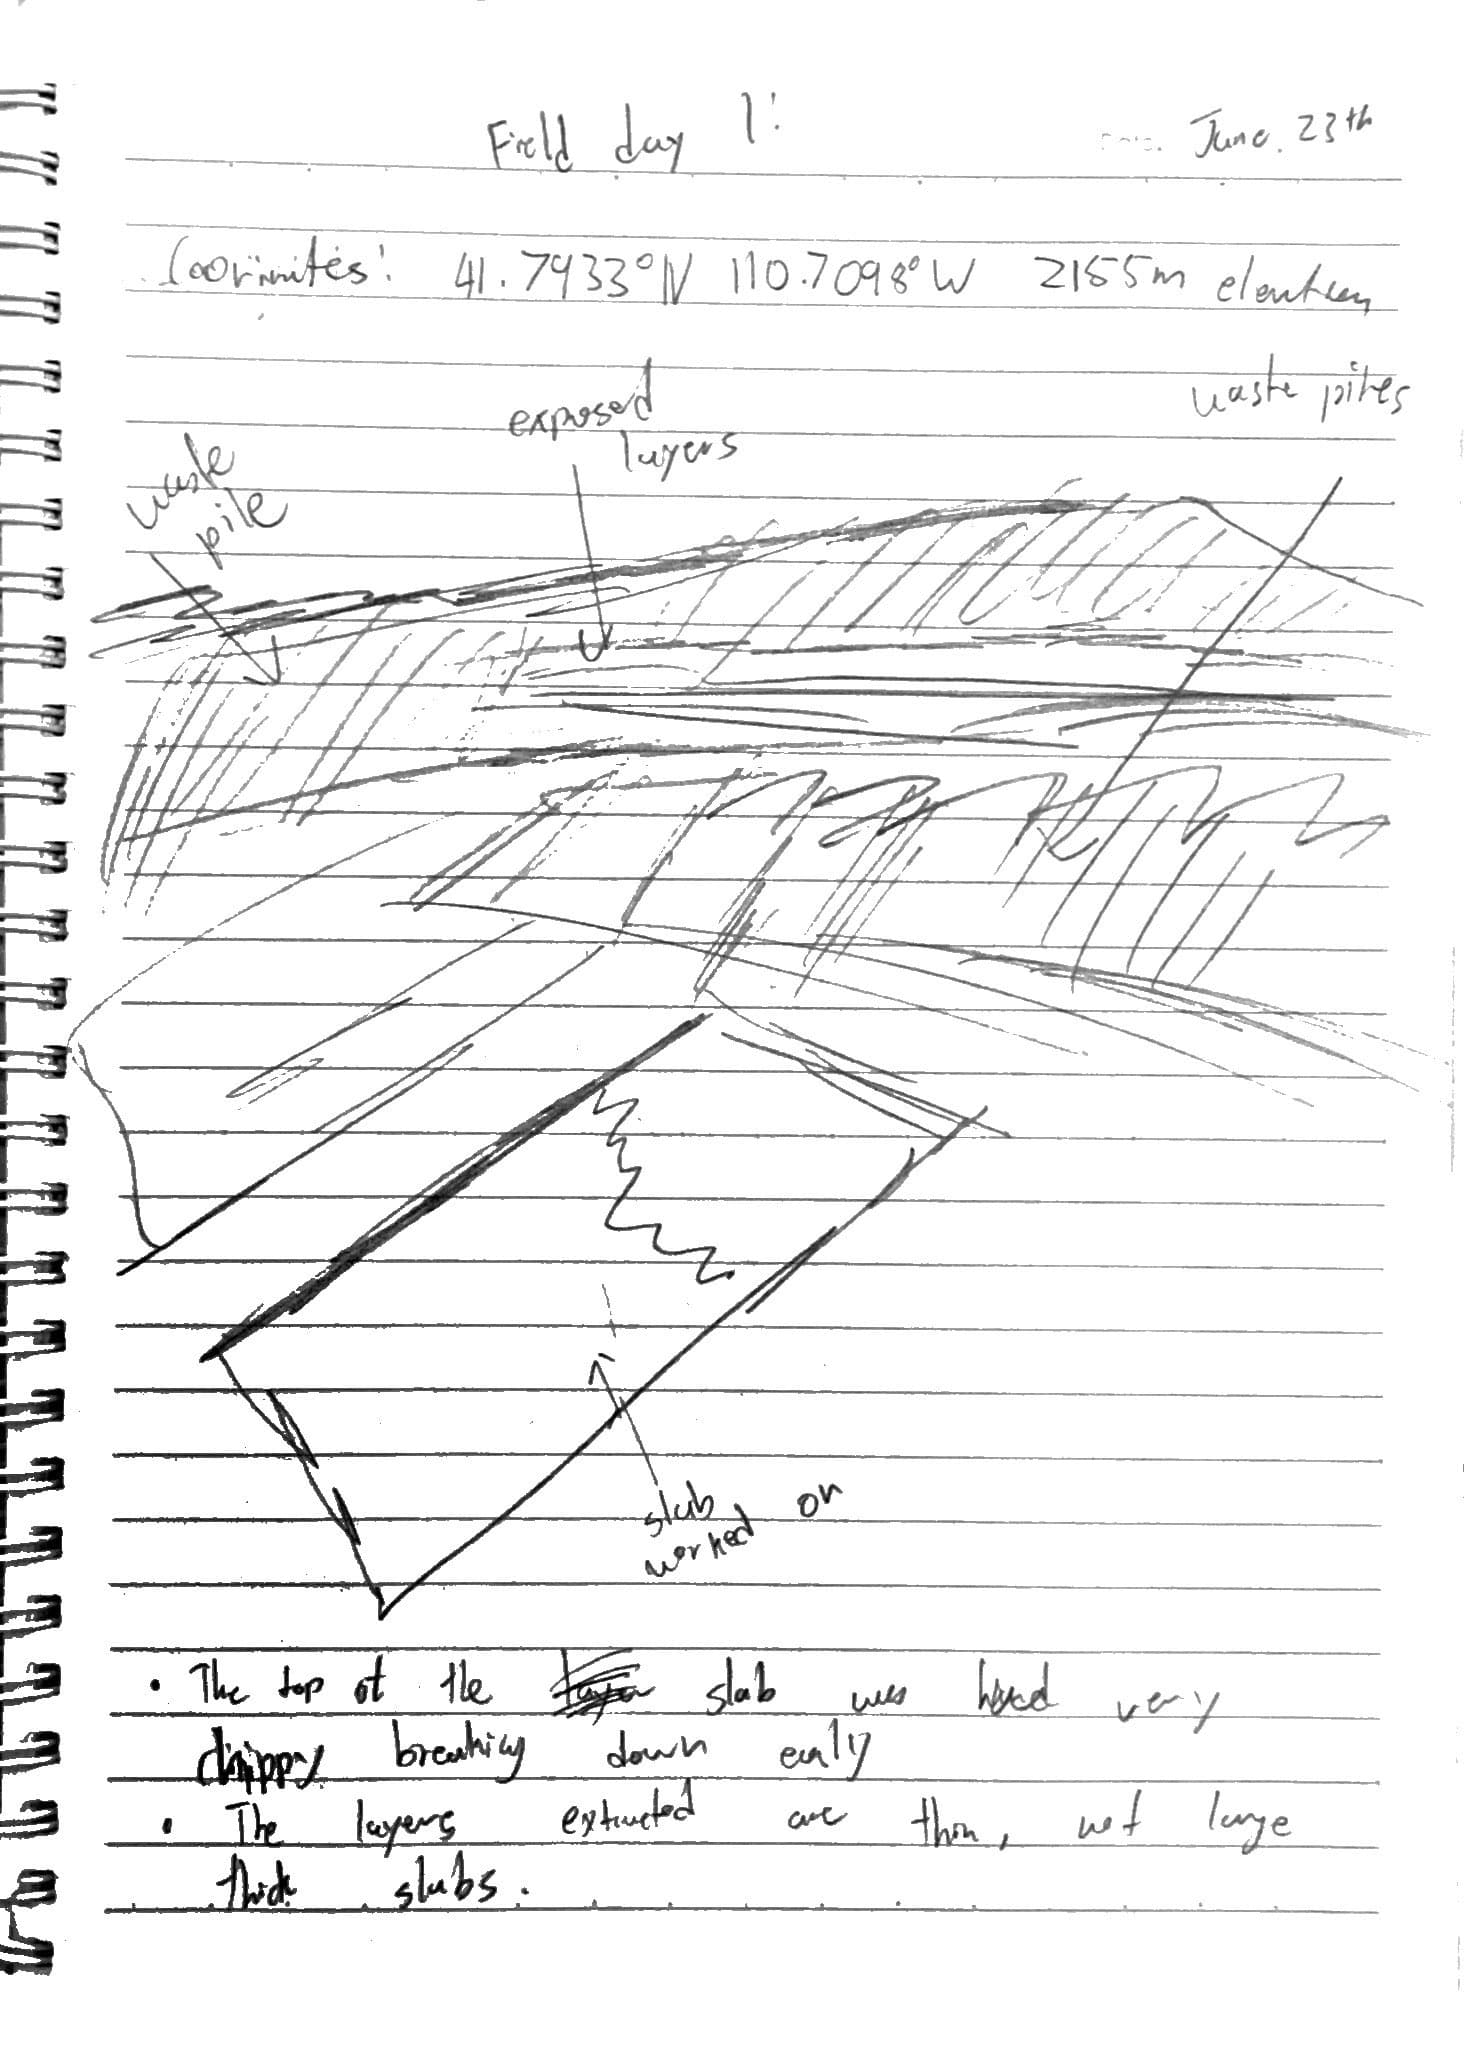 Field day 1:
Date. June. 23th
Coorinates: 41.7933°N 110.7098°W 2155m elevation
waste piles
exposed
layers
waste
pile
slab
worked on
• The top of the slab was very
chippy breaking down early
• The layers extracted are thin, not large
thick slabs.